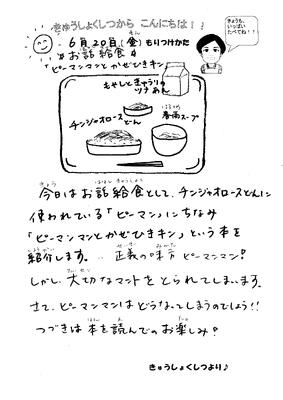 きゅうしょくしつから こんにちは！！
きょうも、
いっぱい
たべてね！！
6月20日(金) もりつけかた
お話給食
「ピーマンマンとかぜひきキン」
もやしときゅうりの
ツナあえ
チンジャオロース
どん
はるさめ
春雨スープ
きょう はなしきゅうしょく
今日はお話給食として、チンジャオロースどんに
つか
使われている「ピーマン」にちなみ
「ピーマンマンとかぜひきキン」という本を
しょうかい せいぎ みかた
紹介します。 正義の味方 ピーマンマン!
たいせつ
しかし、大切なマントをとられてしまいます。
さて、ピーマンマンはどうなってしまうのでしょう!!
ほん よ たの
つづきは本を読んでのお楽しみ♪
きゅうしょくしつより♪